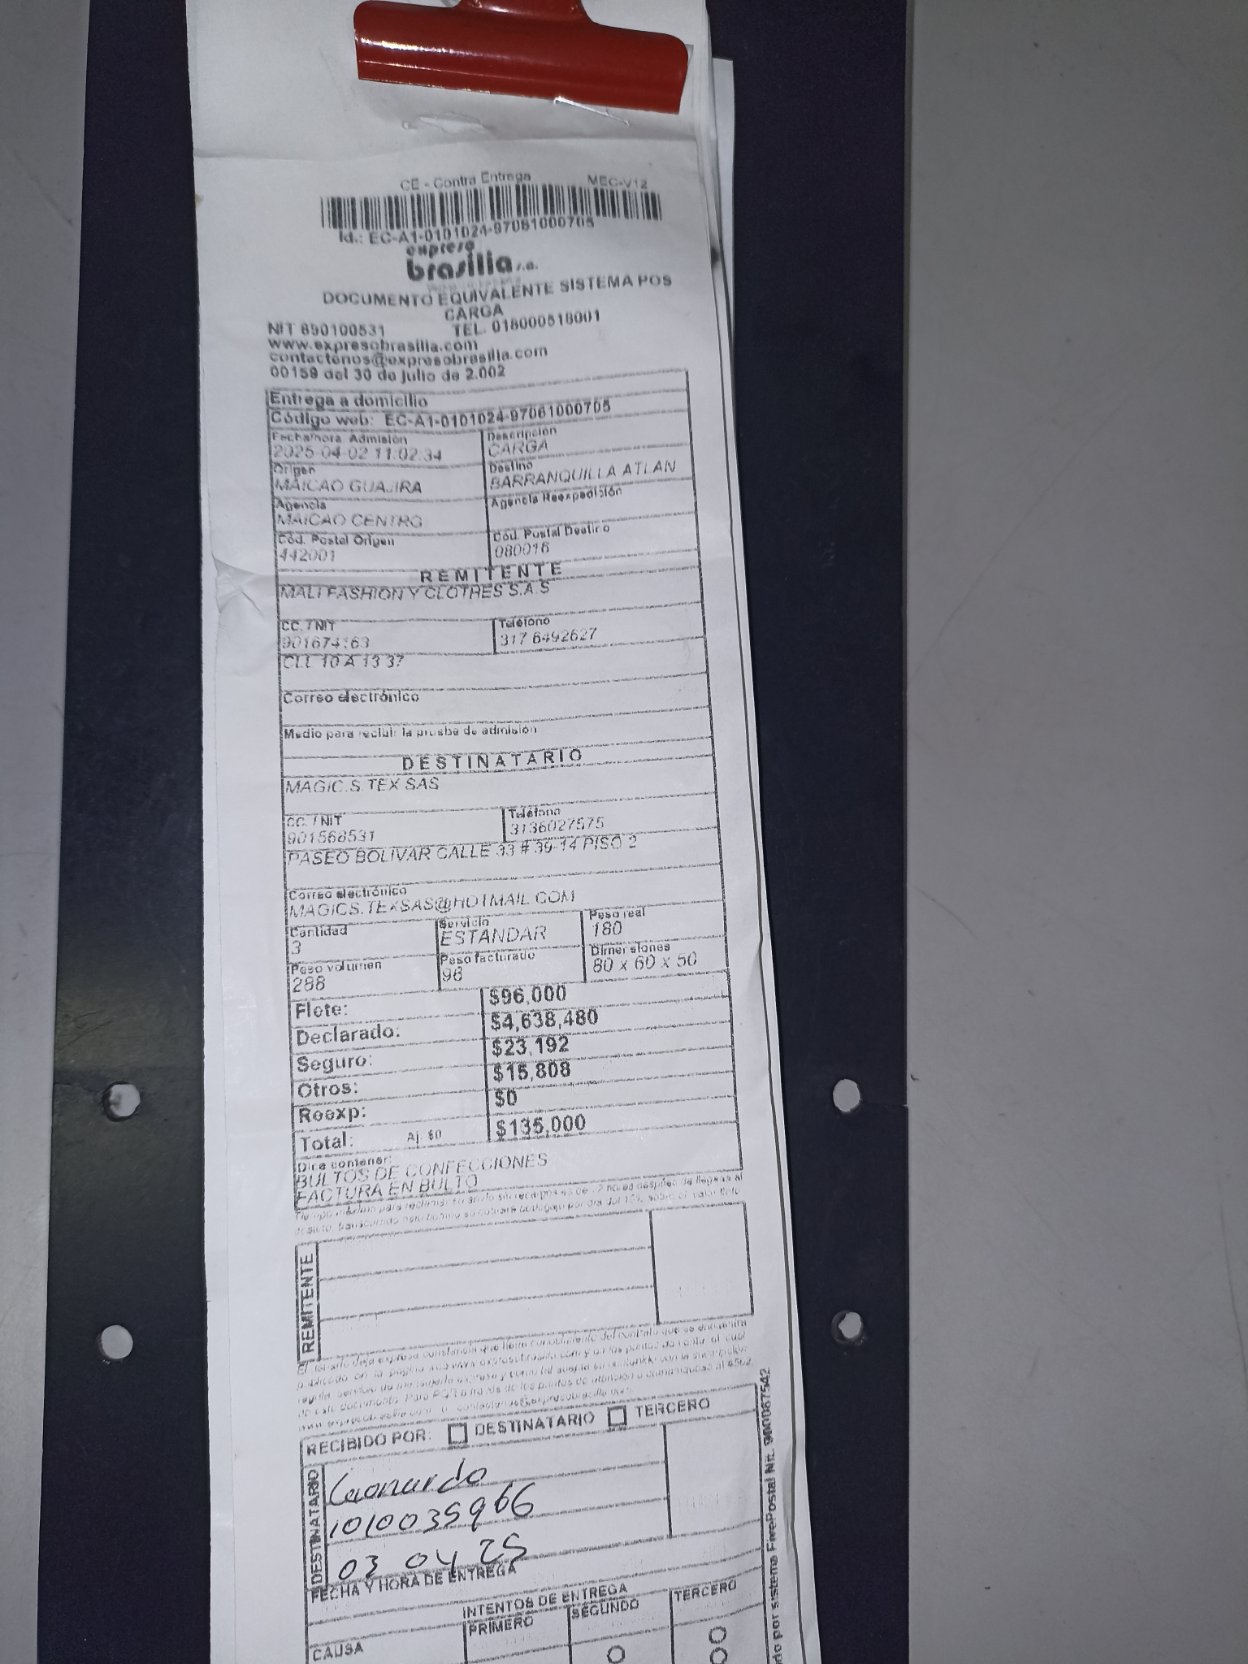 CE - Contra Entrega MEC-V12
Id.: EC-A1-0101024-97061000705
expreso
brasilia s.a.
DOCUMENTO EQUIVALENTE SISTEMA POS
CARGA
NIT 890100531 TEL. 018000518001
www.expresobrasilia.com
contactenos@expresobrasilia.com
00159 del 30 de julio de 2.002
Entrega a domicilio
Código web: EC-A1-0101024-97061000705
Fecha/hora Admisión Descripción
2025-04-02 11:02:34 CARGA
Origen Destino
MAICAO GUAJIRA BARRANQUILLA ATLAN
Agencia Agencia Reexpedición
MAICAO CENTRO
Cód. Postal Origen Cód. Postal Destino
442001 080016
REMITENTE
MALI FASHION Y CLOTHES S.A.S
CC. / NIT Teléfono
901674163 317 6492627
CLL 10 A 13 37
Correo electrónico
Medio para recibir la prueba de admisión
DESTINATARIO
MAGIC.S. TEX SAS
CC. / NIT Teléfono
901568531 3136027575
PASEO BOLIVAR CALLE 33 # 39-14 PISO 2
Correo electrónico
MAGICS.TEXSAS@HOTMAIL.COM
Cantidad Servicio Peso real
3 ESTANDAR 180
Peso volumen Peso facturado Dimensiones
288 96 80 x 60 x 50
Flete: $96,000
Declarado: $4,638,480
Seguro: $23,192
Otros: $15,808
Reexp: $0
Total: Aj. $0 $135,000
Dice contener:
BULTOS DE CONFECCIONES
FACTURA EN BULTO
REMITENTE
RECIBIDO POR: DESTINATARIO TERCERO
DESTINATARIO
Leonardo
1010035966
03 04 25
FECHA Y HORA DE ENTREGA
INTENTOS DE ENTREGA
CAUSA PRIMERO SEGUNDO TERCERO
do por sistema FirePostal Nit. 900087542